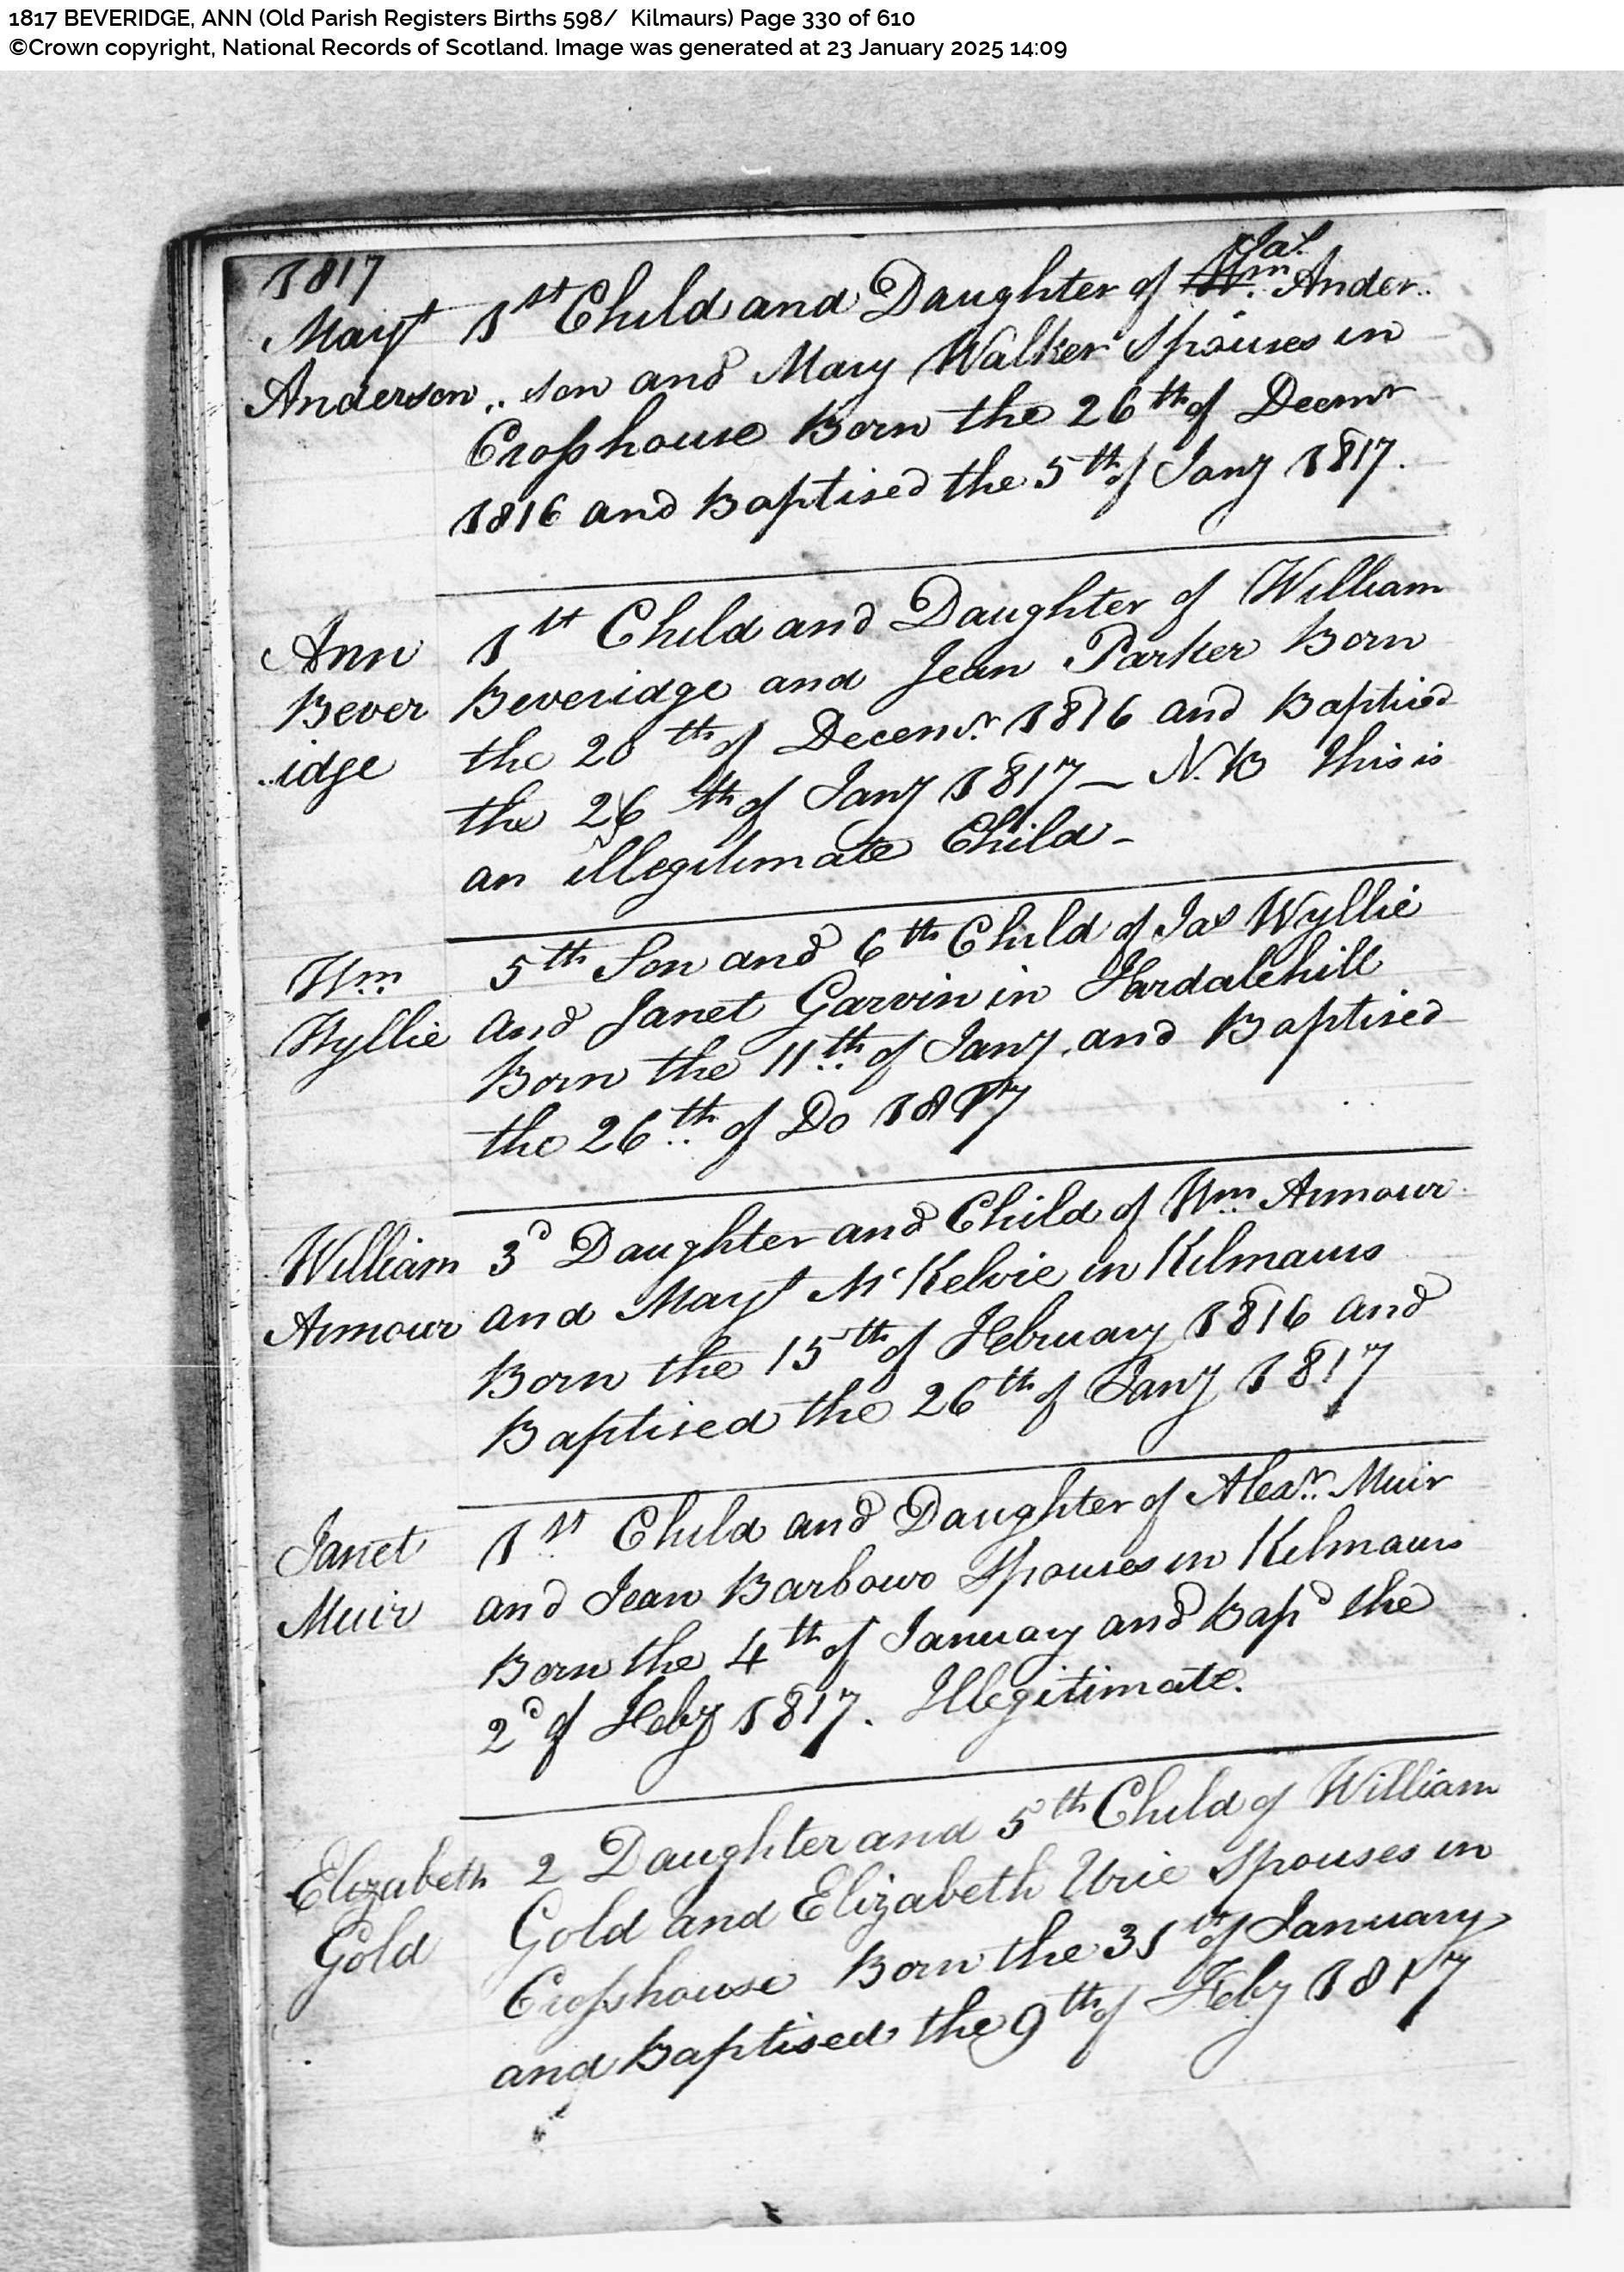 1817 BEVERIDGE, ANN (Old Parish Registers Births 598/ Kilmaurs) Page 330 of 610
©Crown copyright, National Records of Scotland. Image was generated at 23 January 2025 14:09
1817
Jas.
Mayt 1st Child and Daughter of Wm. Ander..
Anderson .. son and Mary Walker Spouses in
Crosshouse Born the 26th of Decemr
1816 and Baptised the 5th of Jany 1817.
Ann 1st Child and Daughter of William
Bever Beveridge and Jean Parker Born
..idge the 20th of Decemr. 1816 and Baptised
the 26th of Jany 1817 — N.B This is
an illegitimate Child -
Wm. 5th Son and 6th Child of Jas Wyllie
Wyllie and Janet Garvin in Hardalehill
Born the 11th of Jany. and Baptised
the 26th of Do 1817
William 3d Daughter and Child of Wm. Armour
Armour and Mayt McKelvie in Kilmaurs
Born the 15th of February 1816 and
Baptised the 26th of Jany 1817
Janet 1st Child and Daughter of Alexr. Muir
Muir and Jean Barbour Spouses in Kilmaurs
Born the 4th of January and Bapd the
2d of Feby 1817. Illegitimate.
Elizabeth 2 Daughter and 5th Child of William
Gold Gold and Elizabeth Urie Spouses in
Crosshouse Born the 31th of January
and Baptised the 9th of Feby 1817